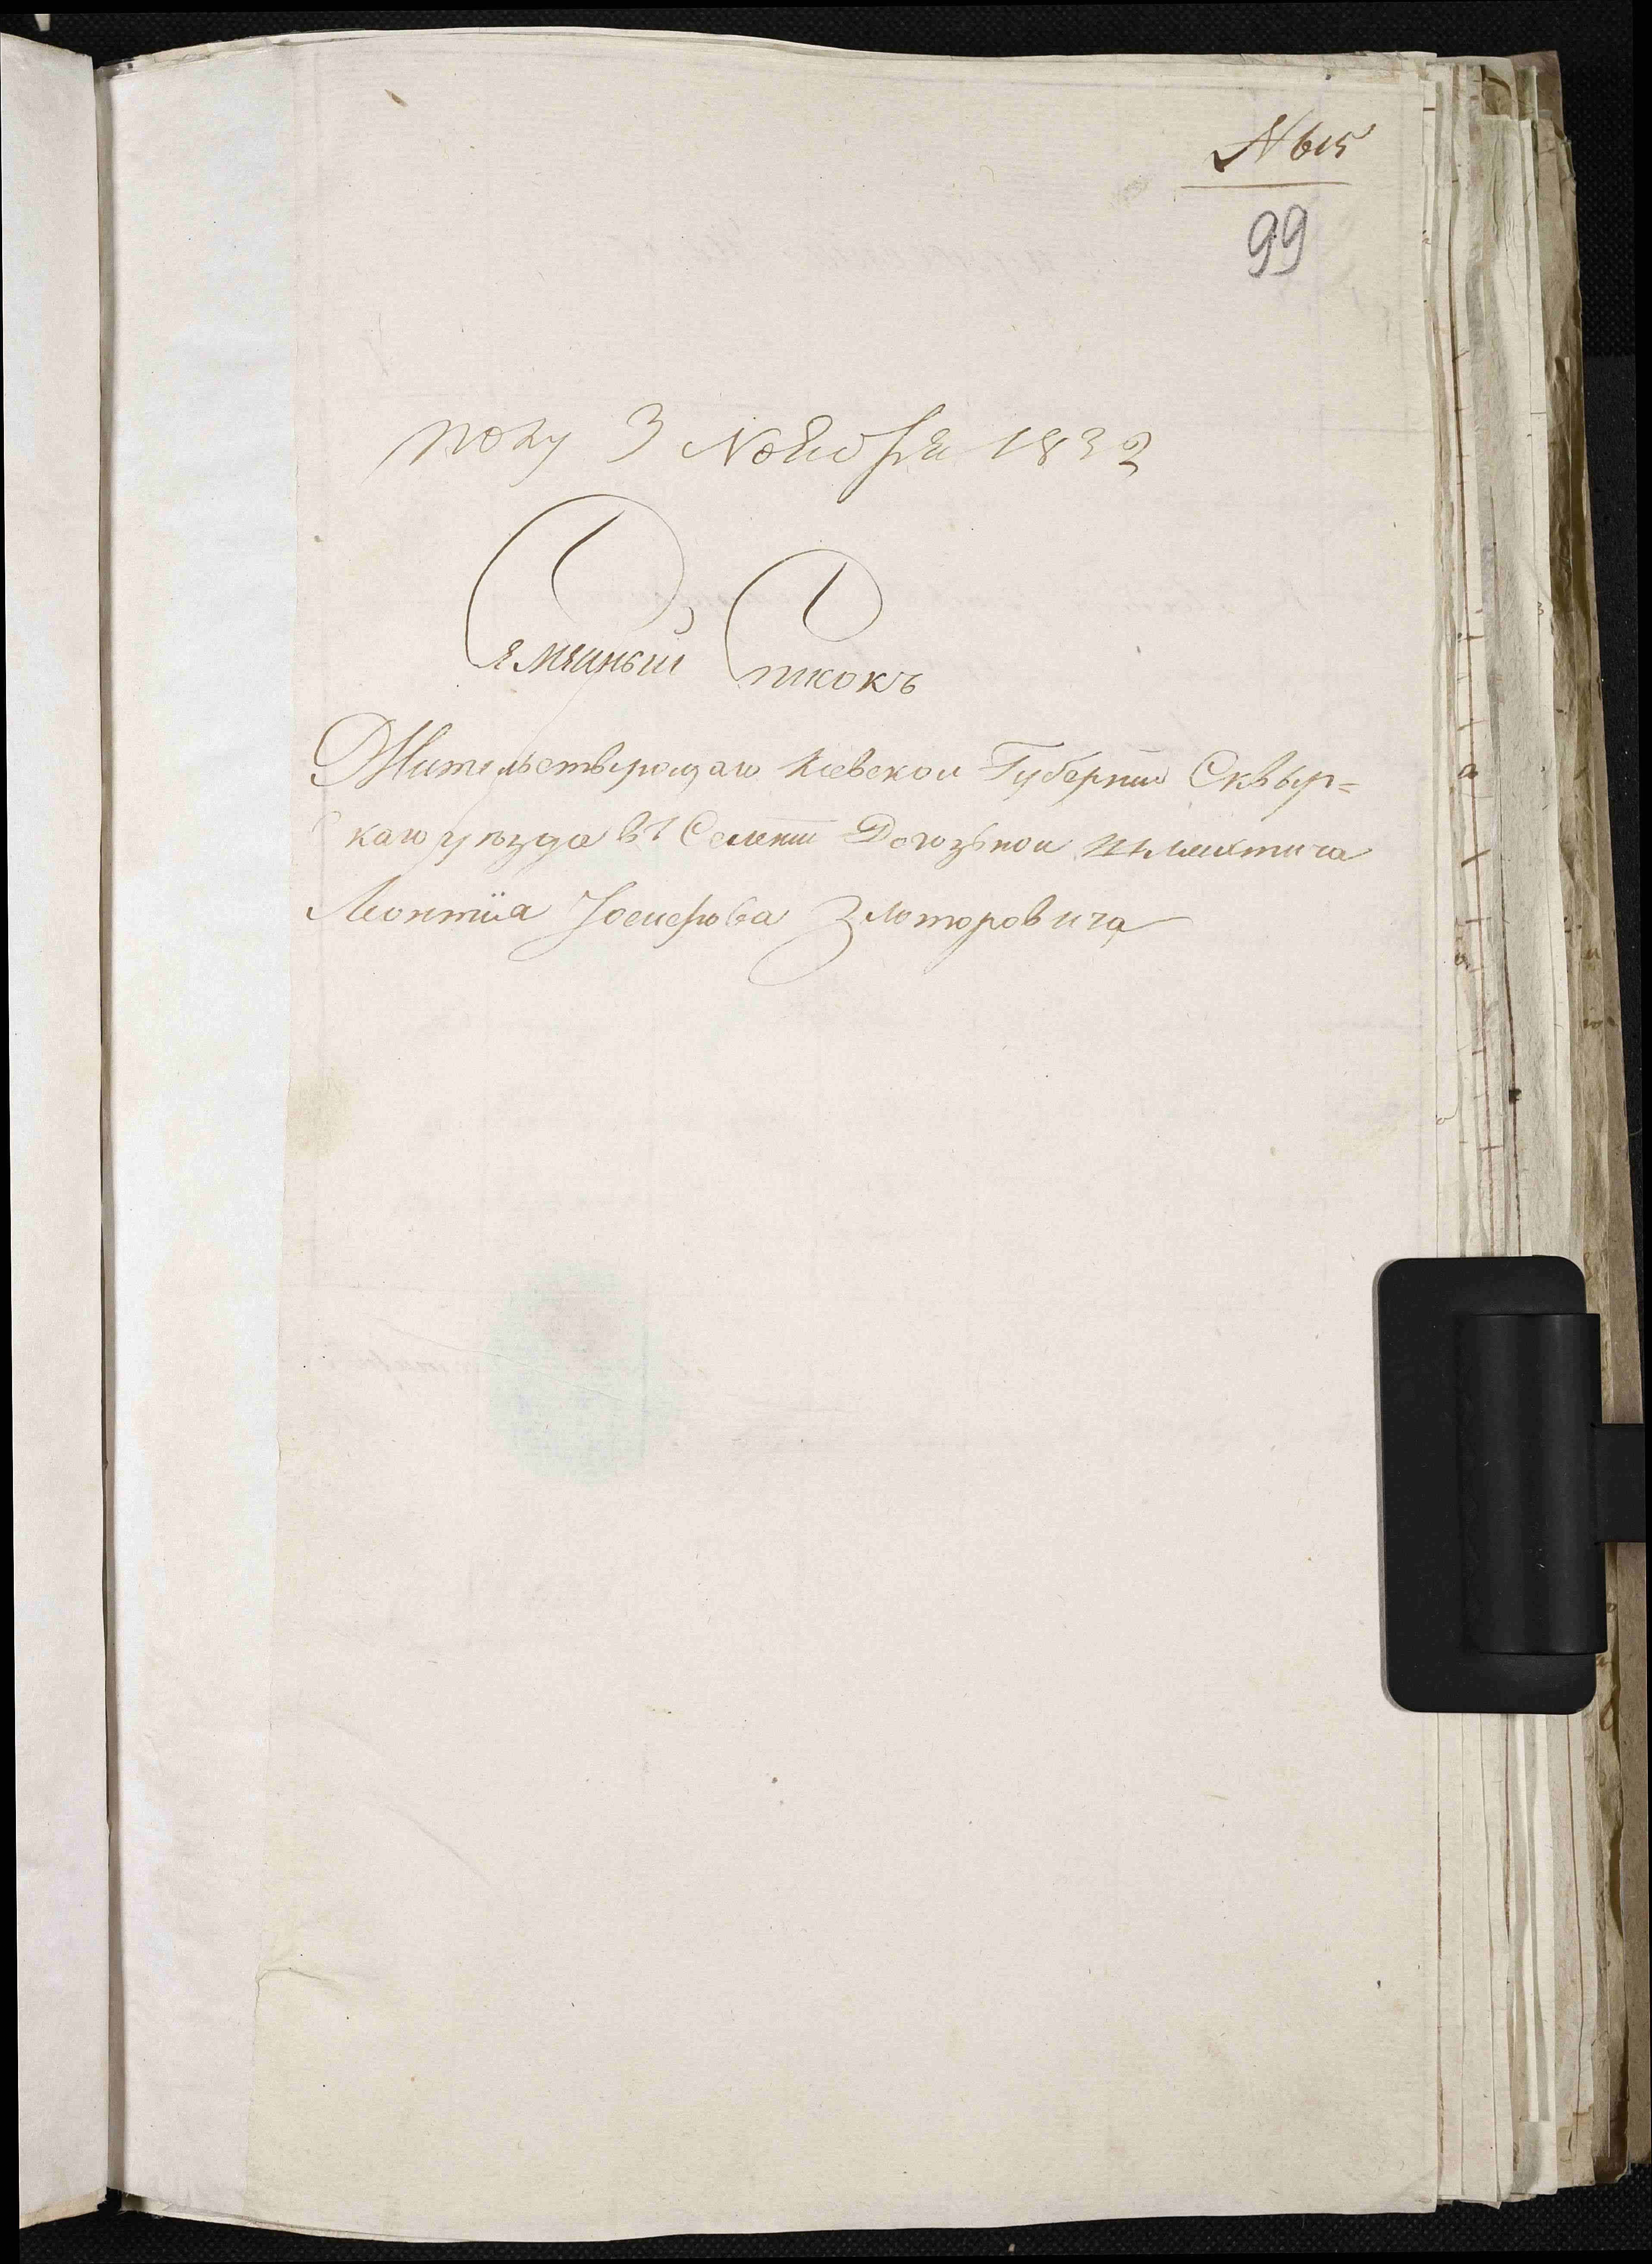 N 615
99
полу 3 Ноября 1832
Семяиный Спикокъ
Жительствующаго Киевской Губернии Сквыр=
каго уъзда въ Селении Догозьной шляхтича
Леонтiя Иосифова Злоторовича